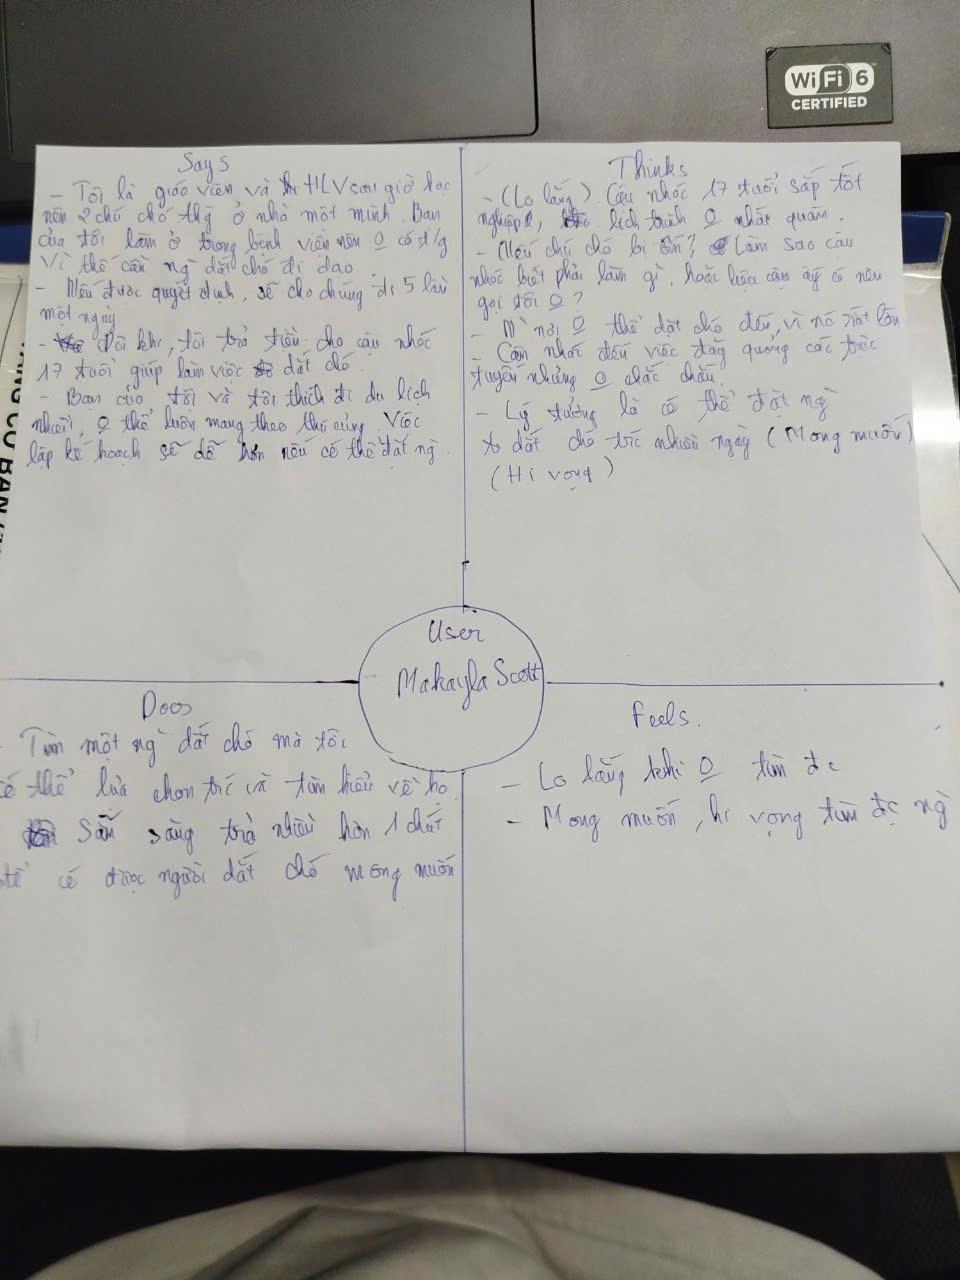 WiFi 6
CERTIFIED
Says
- Tôi là giáo viên và HLV sau giờ học
nên 2 chú chó thg ở nhà một mình. Bạn
của tôi làm ở trong bệnh viện nên O có t/g
Vì thế cần ng` dắt chó đi dạo
- Nếu được quyết định, sẽ cho chúng đi 5 lần
một ngày
- Đôi khi, tôi trả tiền cho cậu nhóc
17 tuổi giúp làm việc dắt chó.
- Bạn của tôi và tôi thích đi du lịch
nhưng O thể luôn mang theo thú cưng. Việc
lập kế hoạch sẽ dễ hơn nếu có thể đặt ng`.
Thinks
- (Lo lắng) Cậu nhóc 17 tuổi sắp tốt
nghiệp, lịch trình O nhất quán.
- Nếu chú chó bị ốm? Làm sao cậu
nhóc biết phải làm gì, hoặc liệu cậu ấy có nên
gọi tôi O?
- M` nơi O thể dắt chó đến, vì nó rất lớn
- Cân nhắc đến việc đăng quảng cáo trực
tuyến nhưng O chắc chắn.
- Lý tưởng là có thể đặt ng`
dắt chó trc nhiều ngày (Mong muốn)
(Hi vọng)
User
Makayla Scott
Does
Tìm một ng` dắt chó mà tôi
có thể lựa chọn trc và tìm hiểu về họ.
Sẵn sàng trả nhiều hơn 1 chút
để có được người dắt chó mong muốn
Feels.
- Lo lắng khi O tìm đc
- Mong muốn, hi vọng tìm đc ng`